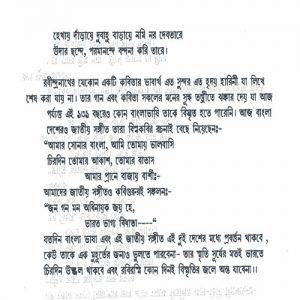 হেথায় দাঁড়ায়ে দুবাহু বাড়ায়ে নমি নর দেবতারে
উদার ছন্দে, পরমানন্দে বন্দনা করি তারে।
রবীন্দ্রনাথের যেকোন একটি কবিতার ভাবার্থ এত সুন্দর এত হৃদয় হারিনী যা লিখে
শেষ করা যায় না। তার গান এবং কবিতা সকলের মনের সুক্ষ তন্ত্রীতে ঝঙ্কার দেয় যা আজ
পর্য্যন্ত এই ১৩৯ বছরেও কোন বাংলাভাষি তাকে বিস্মৃত হতে পারেনি। আজ বাংলা
দেশেরও জাতীয় সঙ্গীত তারা বিশ্বকবির রচনাই বেছে নিয়েছেন:-
"আমার সোনার বাংলা, আমি তোমায় ভালবাসি
চিরদিন তোমার আকাশ, তোমার বাতাস
আমার প্রানে বাজায় বাশী:-
আমাদের জাতীয় সঙ্গীতও কবিগুরুনই সঙ্কলন:-
"জন গন মন অধিনায়ক জয় হে,
ভারত ভাগ্য বিধাতা-----"
যতদিন বাংলা ভাষা এবং এই জাতীয় সঙ্গীত এই দুই দেশের মধ্যে প্রবর্ত্তন থাকবে,
কেউ তাকে এক মুহূর্তের জন্যও ভুলতে পারবেনা- তার স্মৃতি সূর্যের মতই ভারতে
চিরদিন উজ্জ্বল থাকবে এবং রবিরশ্মি কোন দিনই বিস্মৃতির জলে অস্ত যাবেনা।।